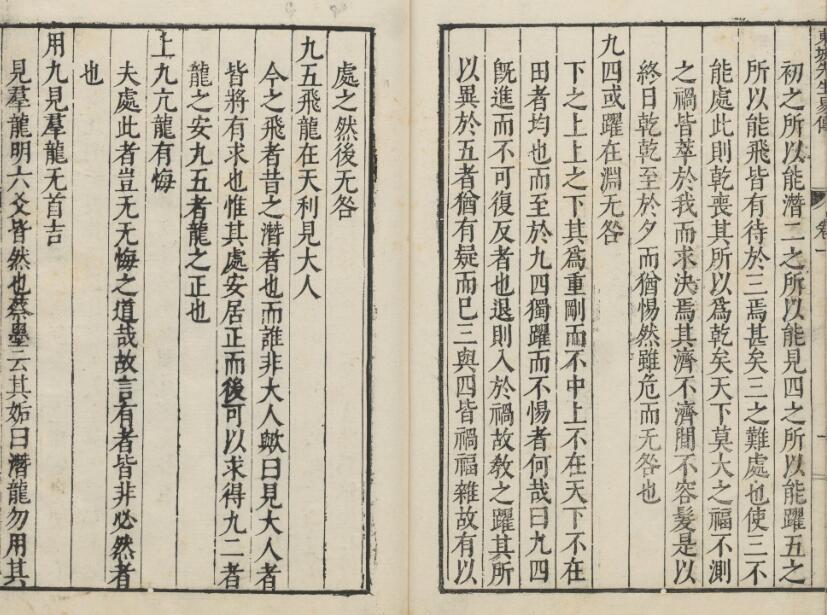 東坡先生易傳
卷一
一
初之所以能潛二之所以能見四之所以能躍五之
所以能飛皆有待於三焉甚矣三之難處也使三不
能處此則乾喪其所以爲乾矣天下莫大之福不測
之禍皆萃於我而求決焉其濟不濟間不容髮是以
終日乾乾至於夕而猶惕然雖危而无咎也
九四或躍在淵无咎
下之上上之下其爲重剛而不中上不在天下不在
田者均也而至於九四獨躍而不惕者何哉曰九四
旣進而不可復反者也退則入於禍故教之躍其所
以異於五者猶有疑而已三與四皆禍福雜故有以
處之然後无咎
九五飛龍在天利見大人
今之飛者昔之潛者也而誰非大人歟曰見大人者
皆將有求也惟其處安居正而後可以求得九二者
龍之安九五者龍之正也
上九亢龍有悔
夫處此者豈无无悔之道哉故言有者皆非必然者
也
用九見羣龍无首吉
見羣龍明六爻皆然也蔡墨云其姤曰潛龍勿用其